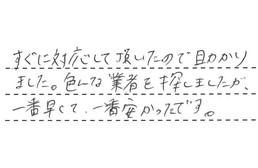 すぐに対応して頂いたので助かり
ました。色んな業者を探しましたが、
一番早くて、一番安かったです。